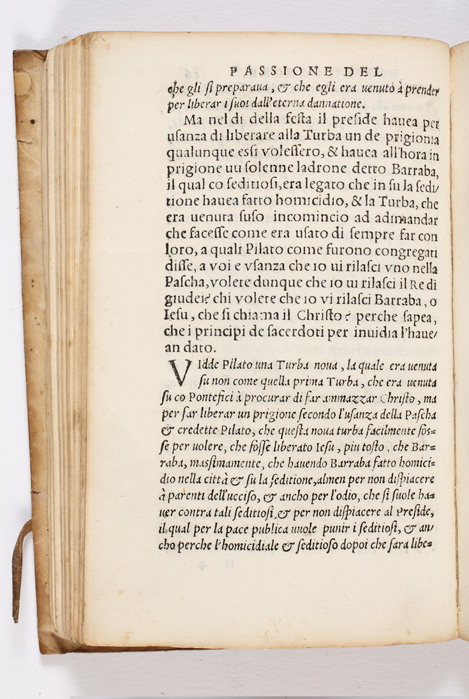 PASSIONE DEL
che gli si preparaua, & che egli era venuto à prender
per liberar i suoi dall'eterna dannatione.
Ma nel di della festa il preside hauea per
usanza di liberare alla Turba un de prigionia
qualunque essi volessero, & hauea all'hora in
prigione uu solenne ladrone detto Barraba,
il qual co seditiosi, era legato che in su la sedi/
tione hauea fatto homicidio, & la Turba, che
era uenuta suso incomincio ad adimandar
che facesse come era usato di sempre far con
loro, a quali Pilato come furono congregati
disse, a voi e vsanza che io ui rilasci vno nella
Pascha, volete dunque che io ui rilasci il Re di
giudei? chi volete che io vi rilasci Barraba, o
Iesu, che si chiama il Christo? perche sapea,
che i principi de sacerdoti per inuidia l'haue/
an dato.
VIdde Pilato una Turba noua, la quale era uenuta
su non come quella prima Turba, che era uenuta
su co Pontefici à procurar di far ammazzar Christo, ma
per far liberar un prigione secondo l'usanza della Pascha
& credette Pilato, che questa noua turba facilmente fos=
se per uolere, che fosse liberato Iesu, piu tosto, che Bar=
raba, massimamente, che hauendo Barraba fatto homici=
dio nella città & su la seditione, almen per non dispiacere
à parenti dell'ucciso, & ancho per l'odio, che si suole ha=
uer contra tali seditiosi, & per non dispiacere al Preside,
il qual per la pace publica uuole punir i seditiosi, & an=
cho perche l'homicidiale & seditioso dopoi che sara libe=